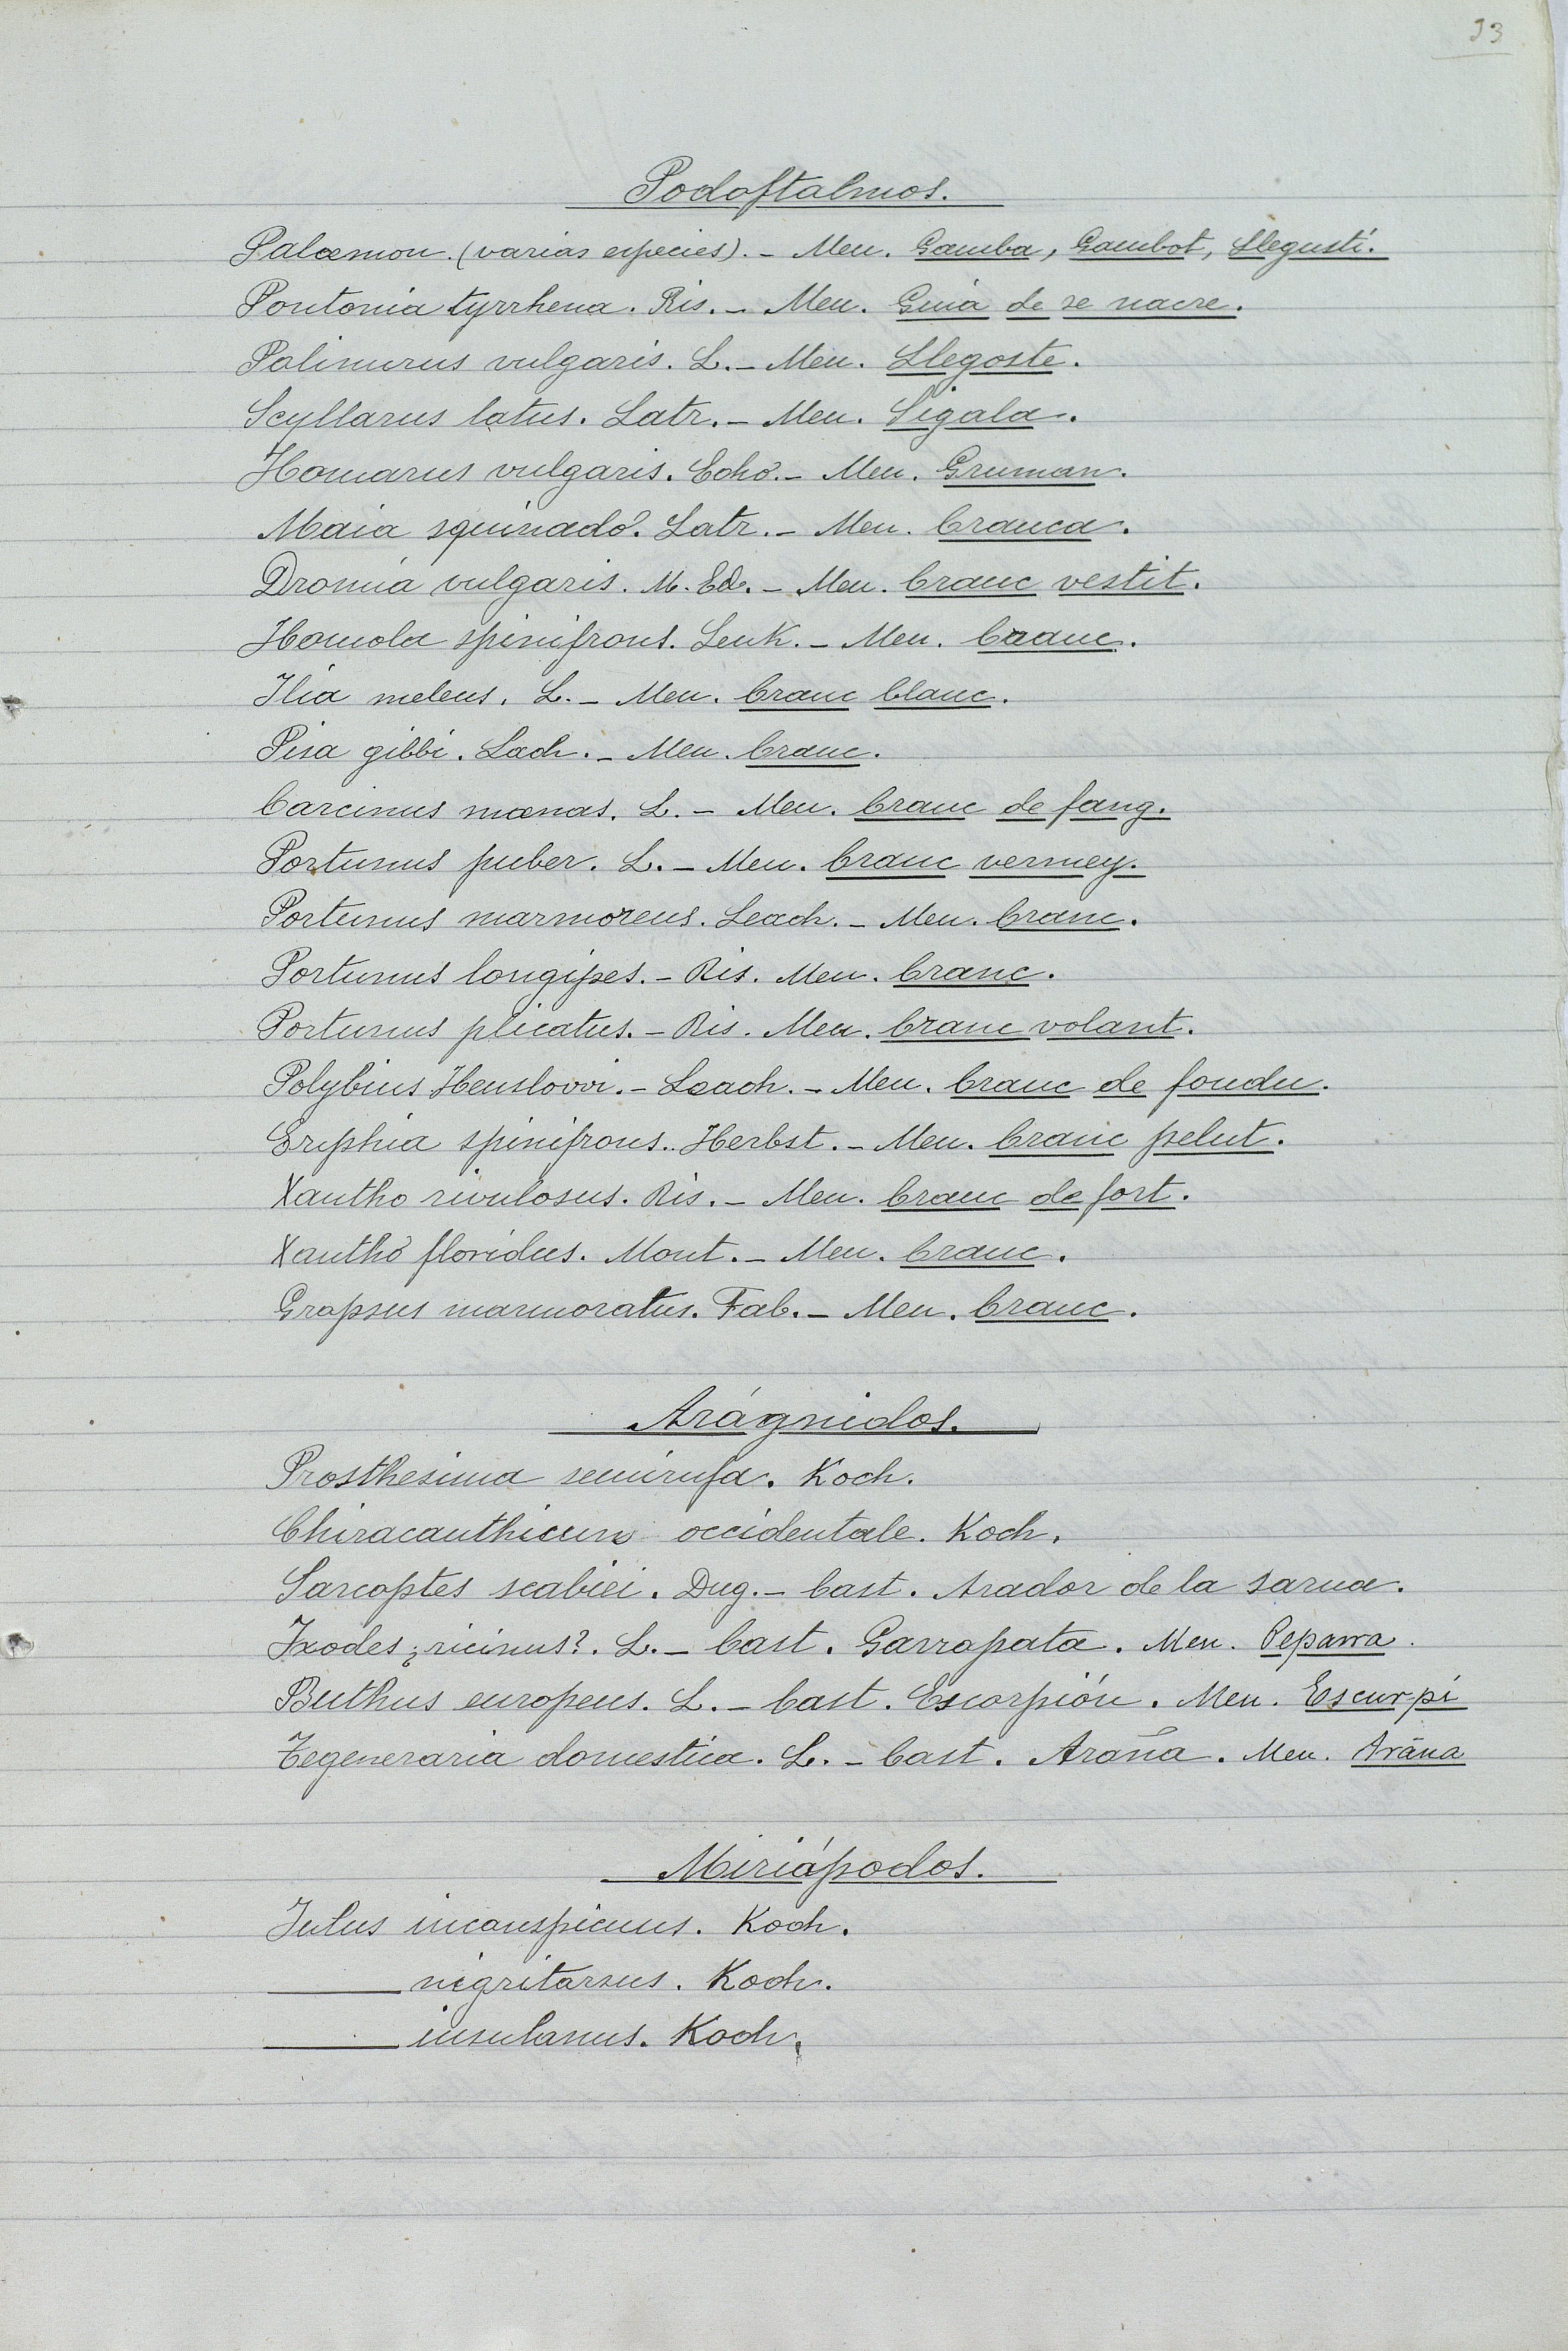 33
Podoftalmos.
Palæmon. (varias especies). – Men. Gamba, Gambot, Llegustí.
Pontonia tyrrhena. Ris. – Men. Guia de se nacre.
Palinurus vulgaris. L. – Men. Llegoste.
Scyllarus latus. Latr. – Men. Sigala.
Homarus vulgaris. Edw. – Men. Gruman.
Maia squinado. Latr. – Men. Cranca.
Dromia vulgaris. M. Ed. – Men. Cranc vestit.
Homola spinifrons. Leuk. – Men. Craanc.
Ilia meleus. L. – Men. Cranc blanc.
Pisa gibbi. Lach. – Men. Cranc.
Carcinus mœnas. L. – Men. Cranc de fang.
Portunus puber. L. – Men. Cranc vermey.
Portunus marmoreus. Leach. – Men. Cranc.
Portunus longipes. – Ris. Men. Cranc.
Portunus plicatus. – Ris. Men. Cranc volant.
Polybius Henslowi. – Leach. – Men. Cranc de fondu.
Eriphia spinifrons. Herbst. – Men. Cranc pelut.
Xantho rivulosus. Ris. – Men. Cranc de fort.
Xantho floridus. Mont. – Men. Cranc.
Grapsus marmoratus. Fab. – Men. Cranc.
Arágnidos.
Prosthesima semirufa. Koch.
Chiracanthicum occidentale. Koch.
Sarcoptes scabiei. Dug. – Cast. Arador de la sarna.
Ixodes ¿ricinus?. L. – Cast. Garrapata. Men. Peparra.
Buthus europeus. L. – Cast. Escorpión. Men. Escurpí
Tegeneraria domestica. L. – Cast. Araña. Men. Arãna
Miriápodos.
Julus inconspicuus. Koch.
——— nigritarsus. Koch.
——— insulanus. Koch.